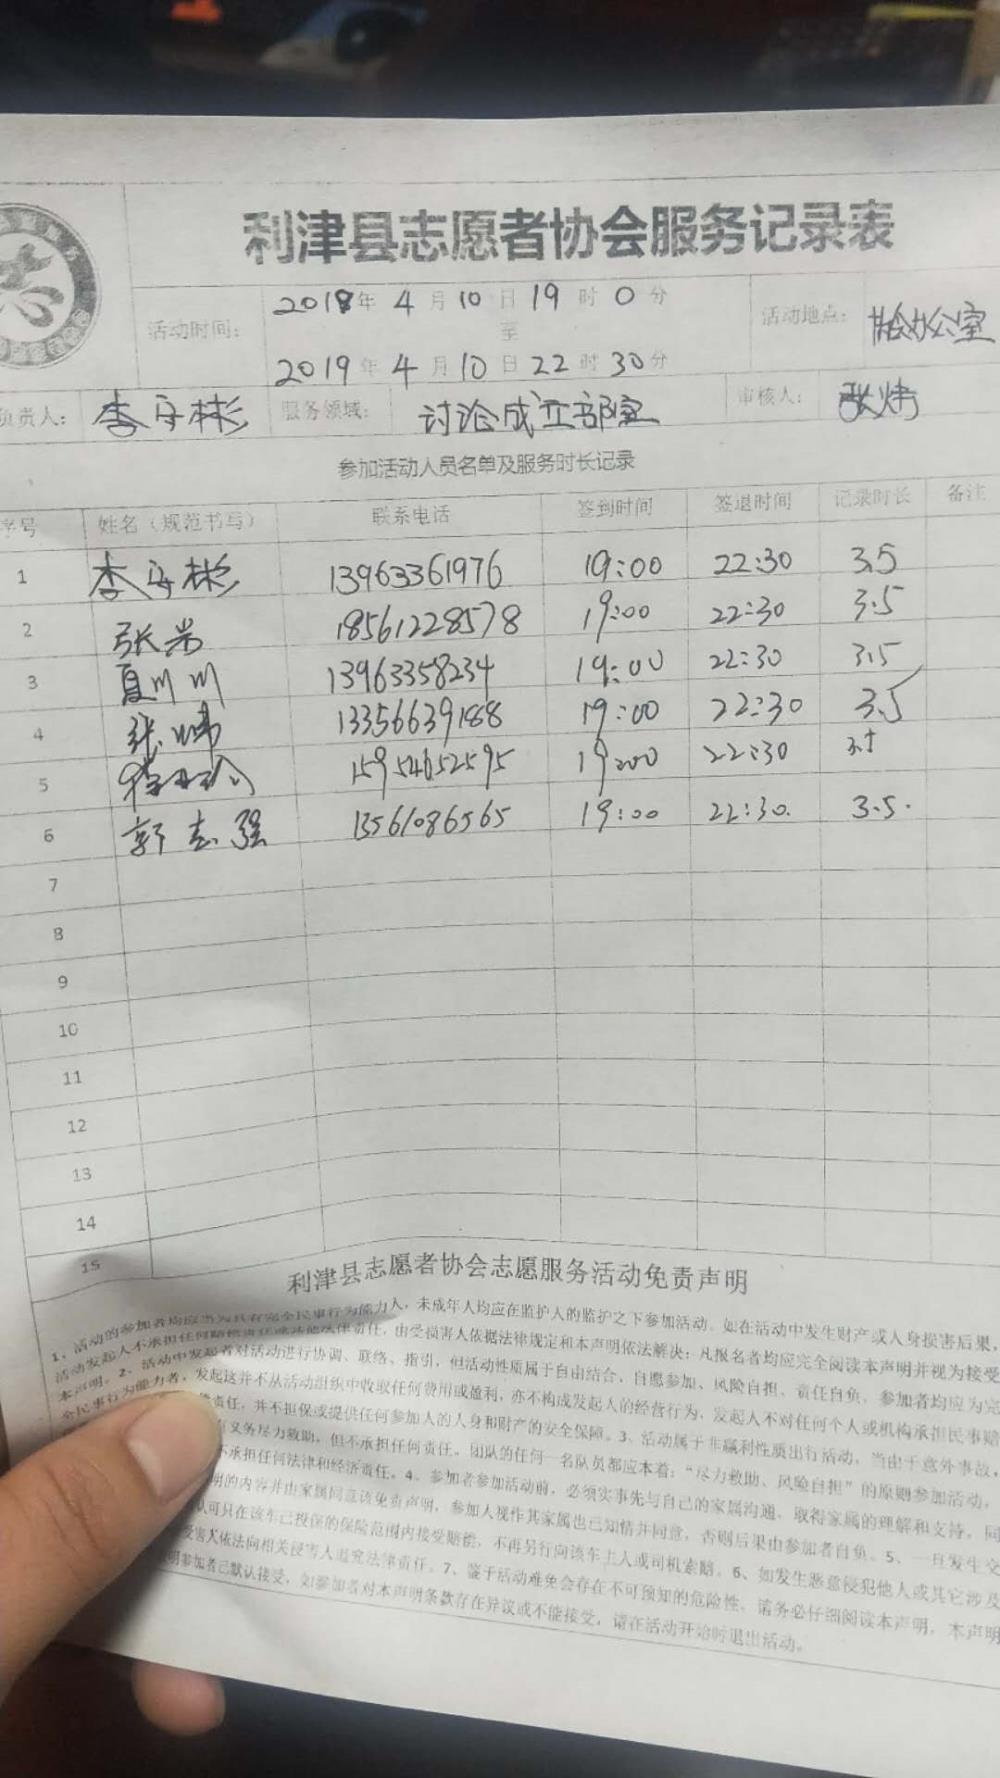 利津县志愿者协会服务记录表
志
活动时间：
2018年 4月10日19时0分
至
2019年4月10日22时30分
活动地点：
协会办公室
负责人：
李守彬
服务领域：
讨论成立部室
审核人：
张炜
参加活动人员名单及服务时长记录
序号 姓名（规范书写） 联系电话 签到时间 签退时间 记录时长 备注
1 李守彬 13963361976 19:00 22:30 3.5
2 张 18561228578 19:00 22:30 3.5
3 夏川川 13963358234 19:00 22:30 3.5
4 张炜 13356639188 19:00 22:30 3.5
5 15954652595 19:00 22:30 3.5
6 郭志强 13561086565 19:00 22:30. 3.5.
7
8
9
10
11
12
13
14
15
利津县志愿者协会志愿服务活动免责声明
1、活动的参加者均应当为具有完全民事行为能力人，未成年人均应在监护人的监护之下参加活动。如在活动中发生财产或人身损害后果，
活动发起人不承担任何赔偿责任或其他法律责任，由受损害人依据法律规定和本声明依法解决；凡报名者均应完全阅读本声明并视为接受
本声明。2、活动中发起者对活动进行协调、联络、指引，但活动性质属于自由结合、自愿参加、风险自担、责任自负，参加者均应为完
全民事行为能力者，发起这并不从活动组织中收取任何费用或盈利，亦不构成发起人的经营行为，发起人不对任何个人或机构承担民事赔
责任，并不担保或提供任何参加人的人身和财产的安全保障。3、活动属于非赢利性质出行活动，当由于意外事故，
义务尽力救助，但不承担任何责任。团队的任何一名队员都应本着：“尽力救助、风险自担”的原则参加活动，
不承担任何法律和经济责任。4、参加者参加活动前，必须实事先与自己的家属沟通，取得家属的理解和支持。同
明的内容并由家属同意该免责声明，参加人视作其家属也已知情并同意，否则后果由参加者自负。5、一旦发生交
认可只在该车已投保的保险范围内接受赔偿，不再另行向该车主人或司机索赔。6、如发生恶意侵犯他人或其它涉及
受害人依法向相关侵害人追究法律责任。7、鉴于活动难免会存在不可预知的危险性，请务必仔细阅读本声明，本声明
明参加者已默认接受，如参加者对本声明条款存在异议或不能接受，请在活动开始时退出活动。